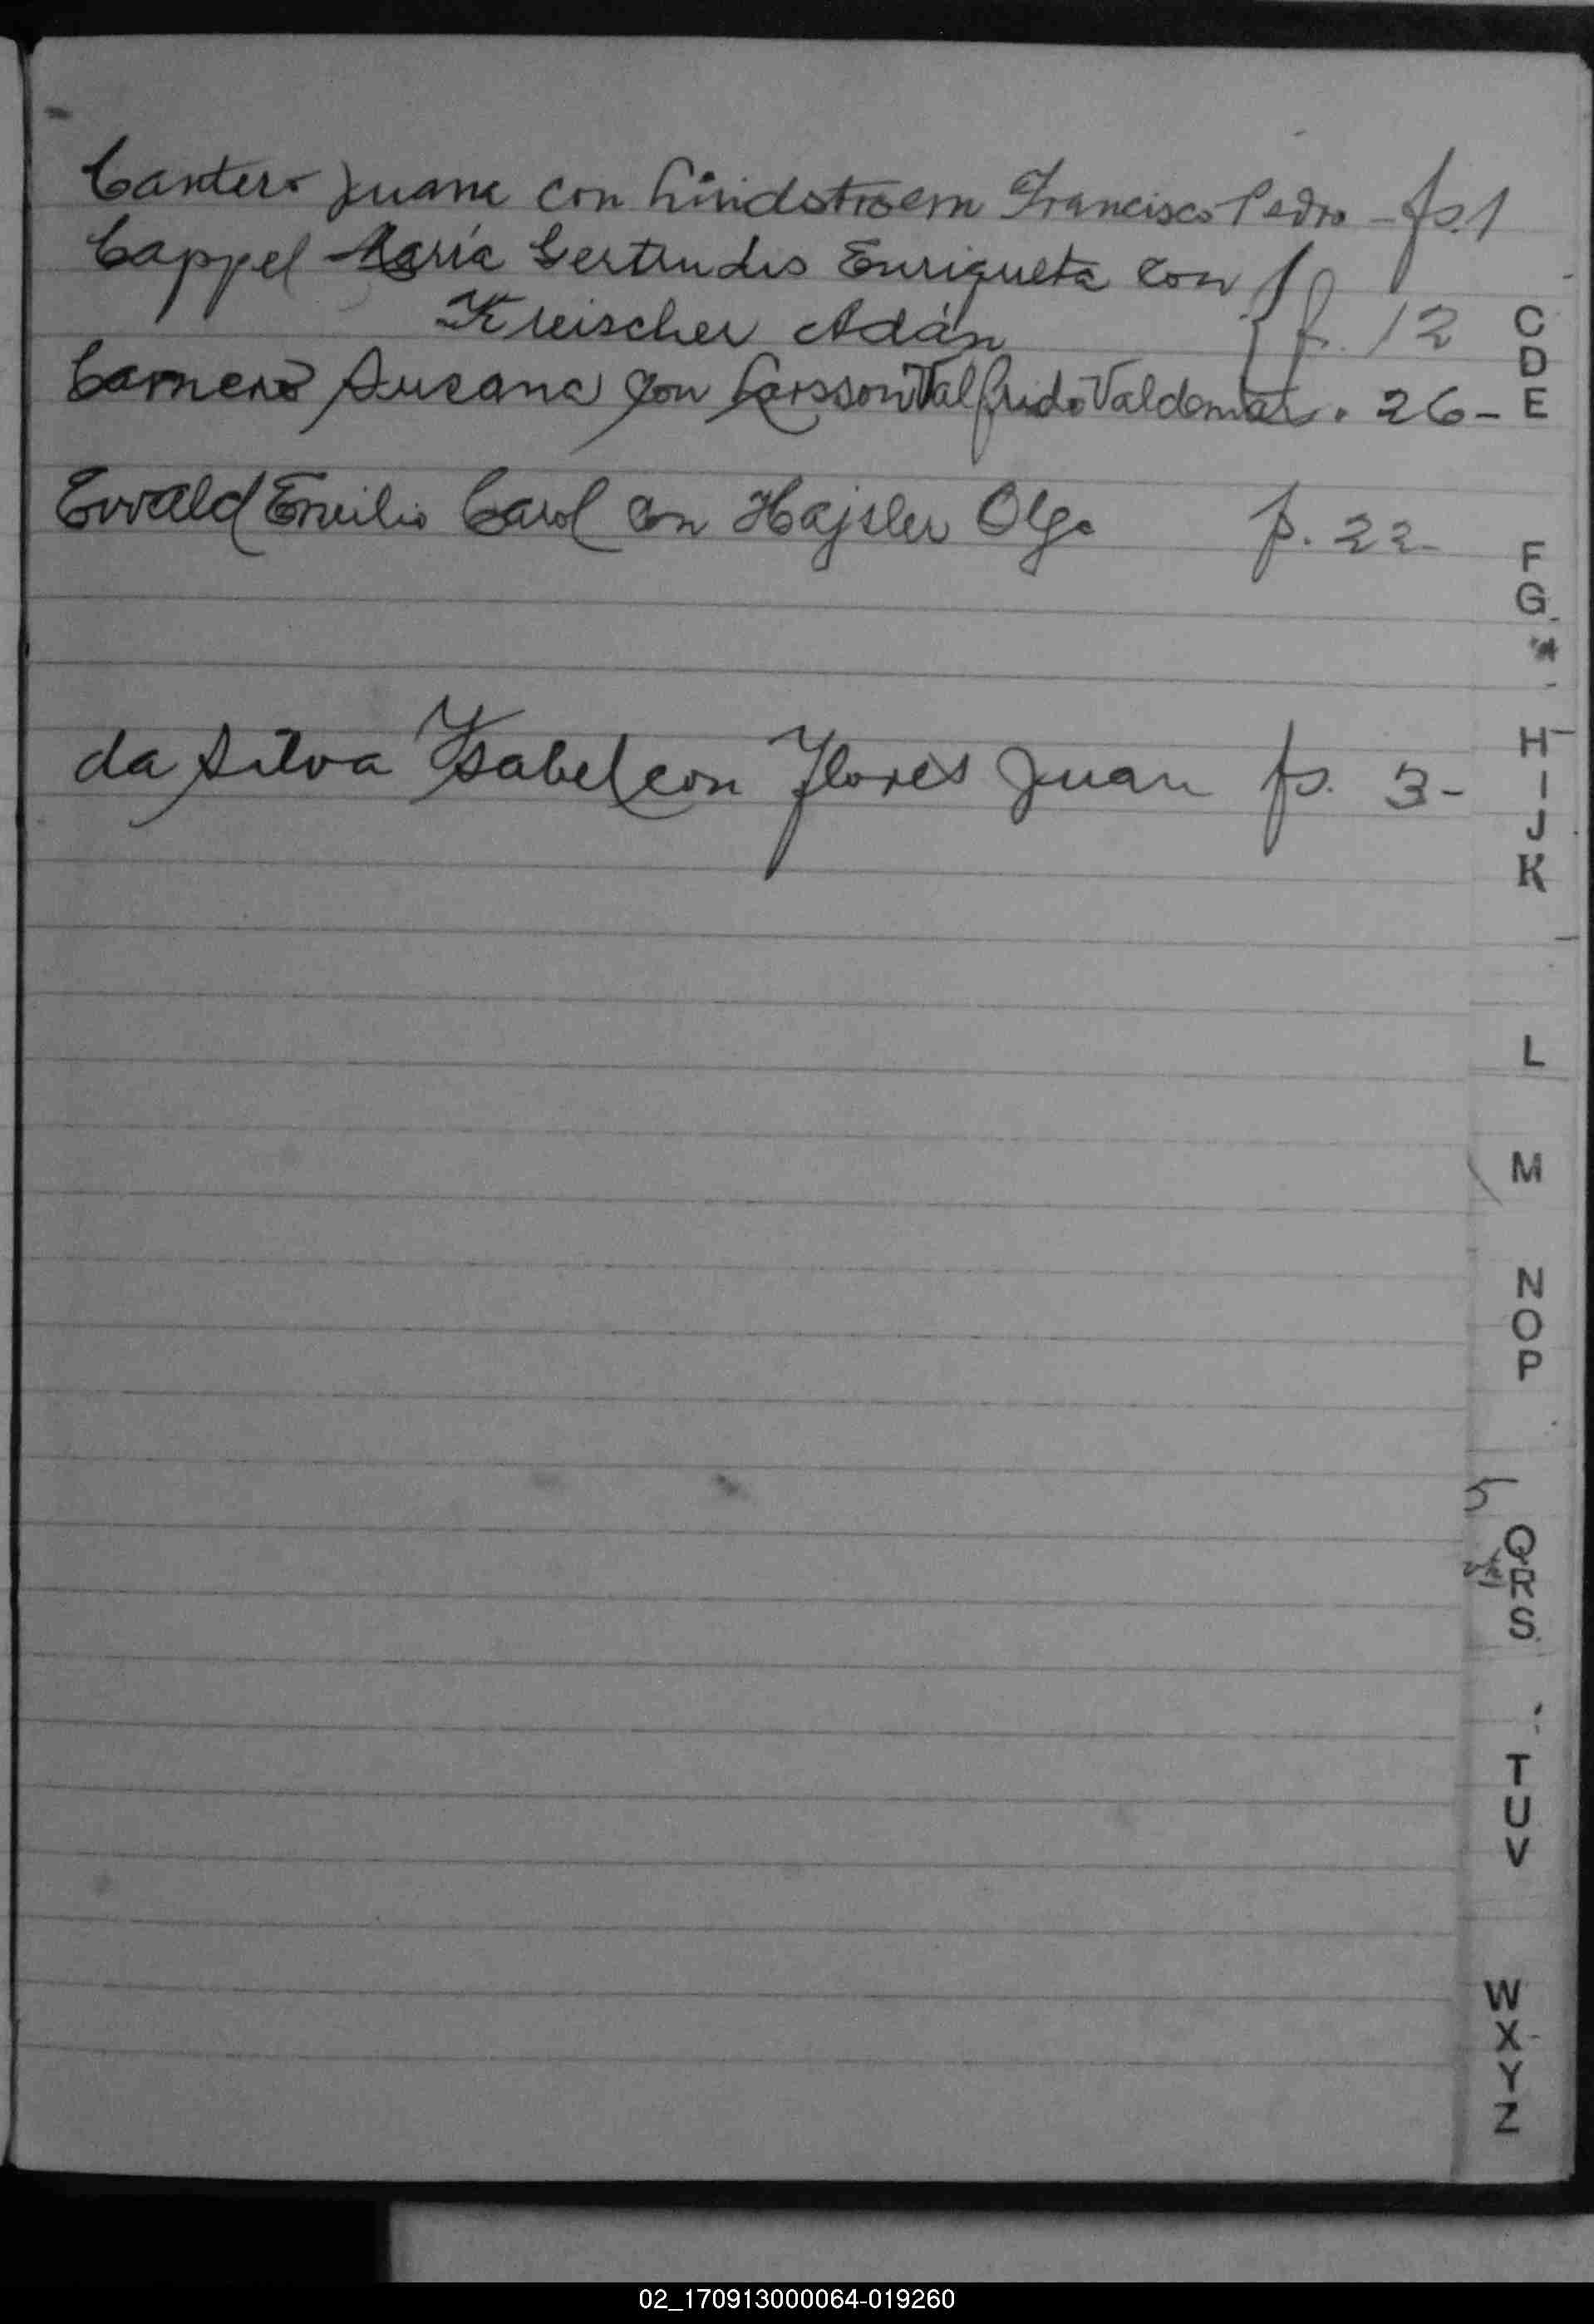 Cantero Juana con Lindstroem Francisco Pedro - fs. 1
Cappel María Gertrudis Enriqueta con
Kreischer Adán f. 12
Carnero Susana con Larsson Valfrido Valdemar. 26-
Ewald Emilio Carol con Hajsler Olga f. 22-
da Silva Ysabel con Flores Juan fs. 3-
C
D
E
F
G
H
I
J
K
L
M
N
O
P
5
Q
R
S
T
U
V
W
X
Y
Z
02_170913000064-019260